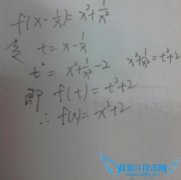 f(x-1/x)=x²+1/x²
令 t=x-1/x
t²=x²+1/x²-2 x²+1/x²=t²+2
即 f(t)=t²+2
∴f(x)=x²+2